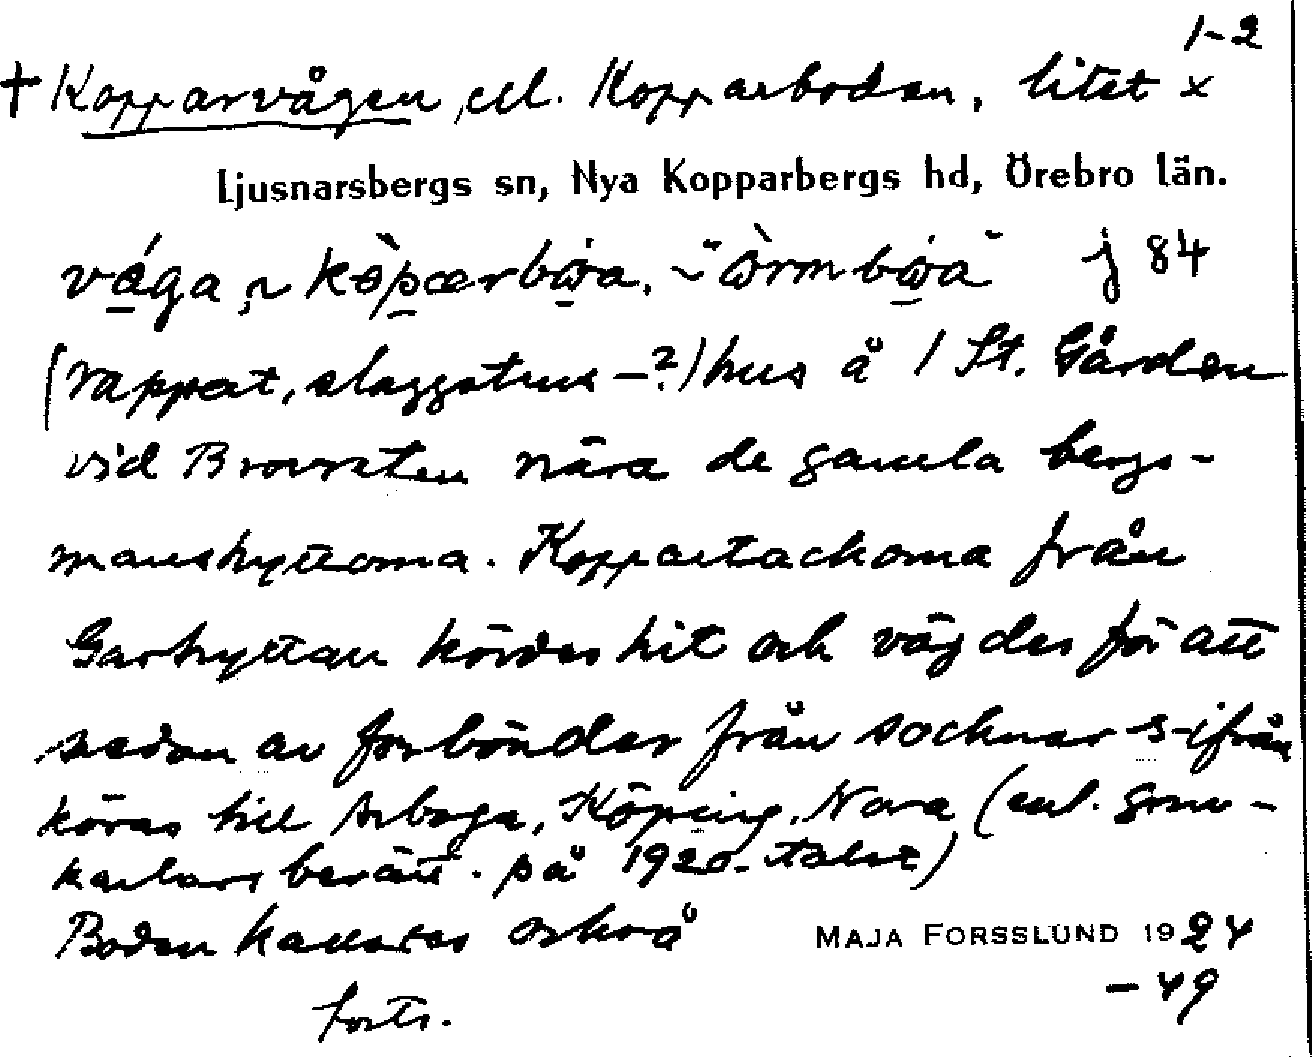 1-2
† Kopparvågen, ell. Kopparboden, litet x
Ljusnarsbergs sn, Nya Kopparbergs hd, Örebro län.
våga, ~ j 84
(rappat, slaggstens -?) hus å / St. Gården
vid nära de gamla bergs-
manshyttorna. Koppartackorna från
Garhyttan kördes hit och vägdes för att
sedan av forbönder från socknar s-ifrån
köras till Arboga, Köping, Nora (enl. gruv-
karlars berätt. på 1920-talet)
Boden kallades också
MAJA FORSSLUND 1924
-49
forts.